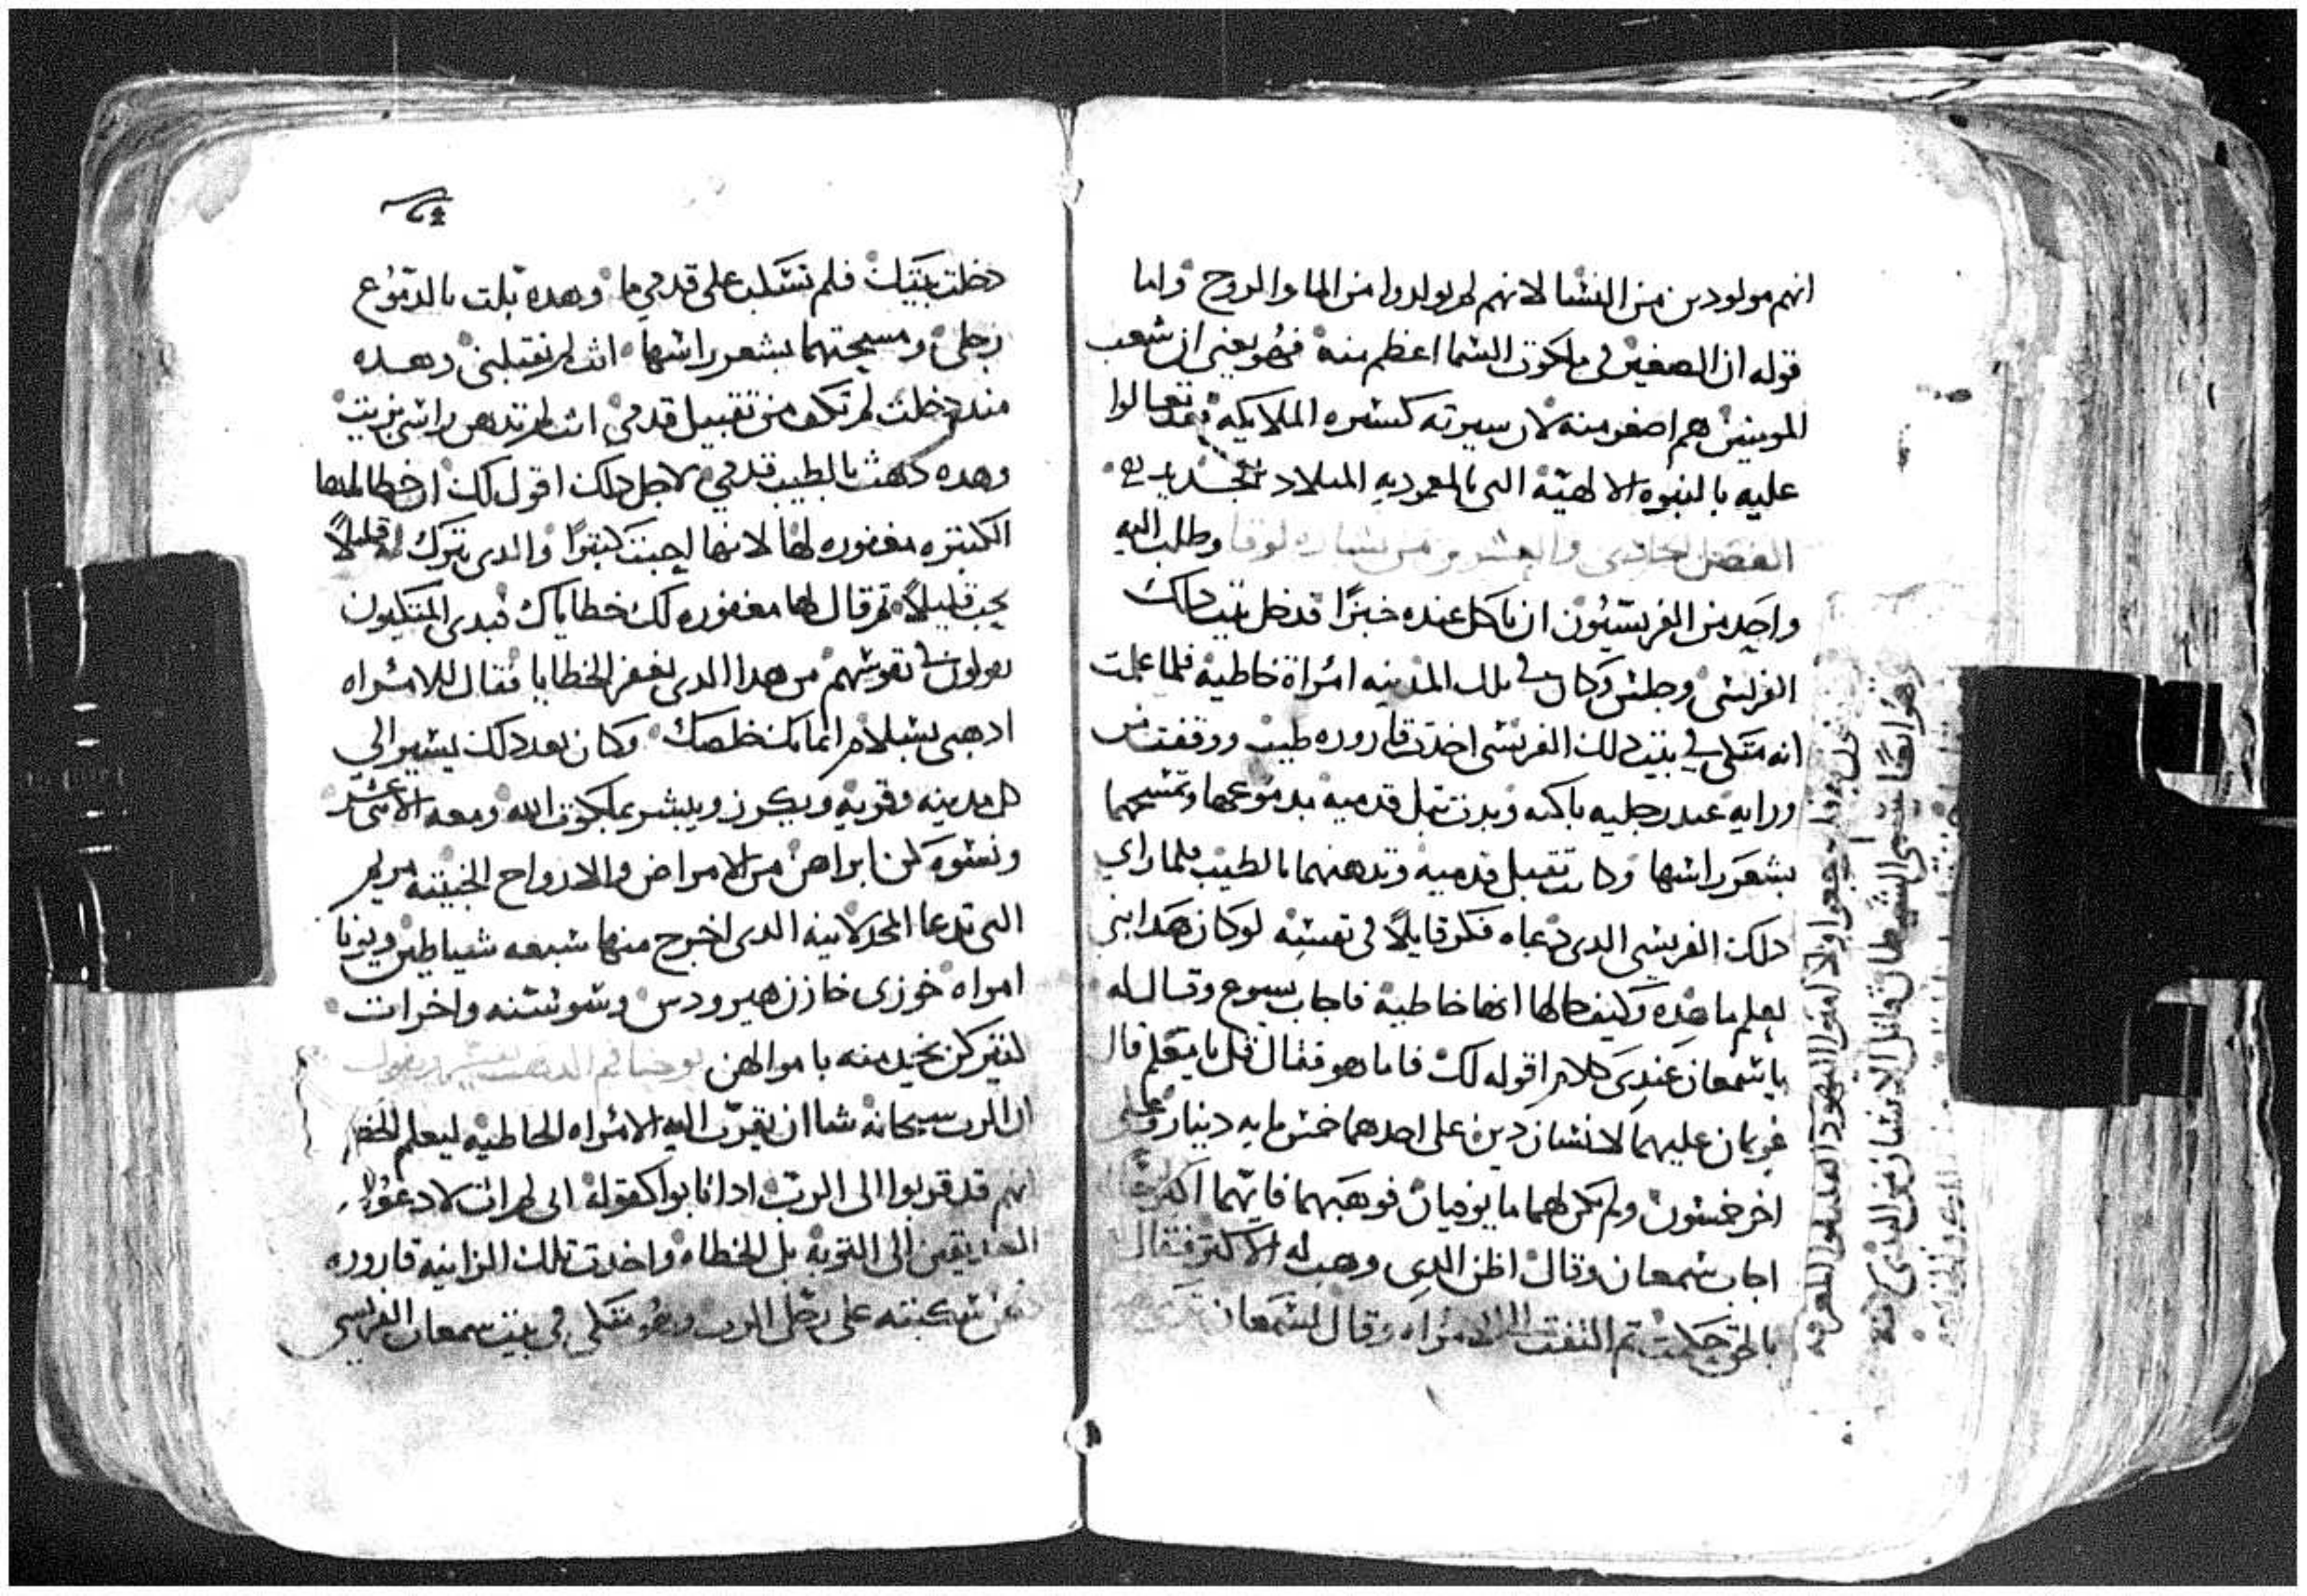 انهم مولودين من النسا لانهم لم يولدوا من الما والروح واما
قوله ان الصغير في ملكوت السما اعظم منه فهو يعني ان شعب
المومنين هم اصغر منه لان سيرته كسيره الملايكه فقد تعالوا
عليه بالبنوه الالهيه التي بالمعموديه الميلاد الجديد
الفصل الحادي والعشرون من بشاره لوقا وطلب اليه
واحد من الفريسيون ان ياكل عنده خبزًا فدخل بيت دلك
الفريسي وجلس وكان في تلك المدينه امراة خاطية فلما علمت
انه متكي في بيت دلك الفريسي اخدت قاروره طيب ووقفت من
ورايه عند رجليه باكيه وبدت تبل قدميه بدموعها وتمسحهما
بشعر راسها وكانت تقبل قدميه وتدهنهما بالطيب فلما راي
دلك الفريسي الدي دعاه فكر قايلًا في نفسه لو كان هدا نبي
يعلم ما هده وكيف حالها انها خاطية فاجاب يسوع وقال له
يا سمعان عندي كلام اقوله لك فاما هو فقال قل يا معلم قال
غريمان عليهما لانسان دين على احدهما خمس مايه دينار وعلى
اخر خمسون ولم يكن لهما ما يوفيان فوهبهما فايهما اكثر
اجاب سمعان وقال اظن الدي وهب له الاكثر فقال
بالحق حكمت تم التفت الى الامراه وقال لسمعان
وهو ايضًا يسمي الشيطان قاتل الانسان من البدي
دخلت بيتك فلم تسكب على قدمي ما وهده بلت بالدموع
رجلي ومسحتهما بشعر راسها انت لم تقبلني وهده
مند دخلت لم تكف من تقبيل قدمي انت لم تدهن راسي بزيت
وهده دهنت بالطيب قدمي لاجل دلك اقول لك ان خطاياها
الكتيره مغفوره لها لانها احبت كتيرًا والدي يترك له قليلًا
يحب قليلًا تم قال لها مغفوره لك خطاياك فبدي المتكيون
يقولون في نفوسهم من هدا الدي يغفر الخطايا فقال للامراه
ادهبي بسلام ايمانك خلصك وكان بعد دلك يسير الي
كل مدينه وقريه ويكرز ويبشر بملكوت الله ومعه الاتني عشر
ونسوه كن ابراهن من الامراض والارواح الخبيته مريم
التي تدعا المجدلانيه الدي اخرج منها سبعه شياطين ويونا
امراه خوزي خازن هيرودس وسوسنه واخرات
كتير كن يخدمنه باموالهن يوحنا فم الدهب يفسر ويقول
ان الرب سبحانه شا ان تقرب اليه الامراه الخاطيه ليعلم الخطاه
انهم قد قربوا الى الرب ادا تابوا كقوله اني لم ات لادعوا
الصديقين الى التوبه بل الخطاه واخدت تلك الزانيه قاروره
سكبته على رجل الرب وهو متكي في بيت سمعان الفريسي